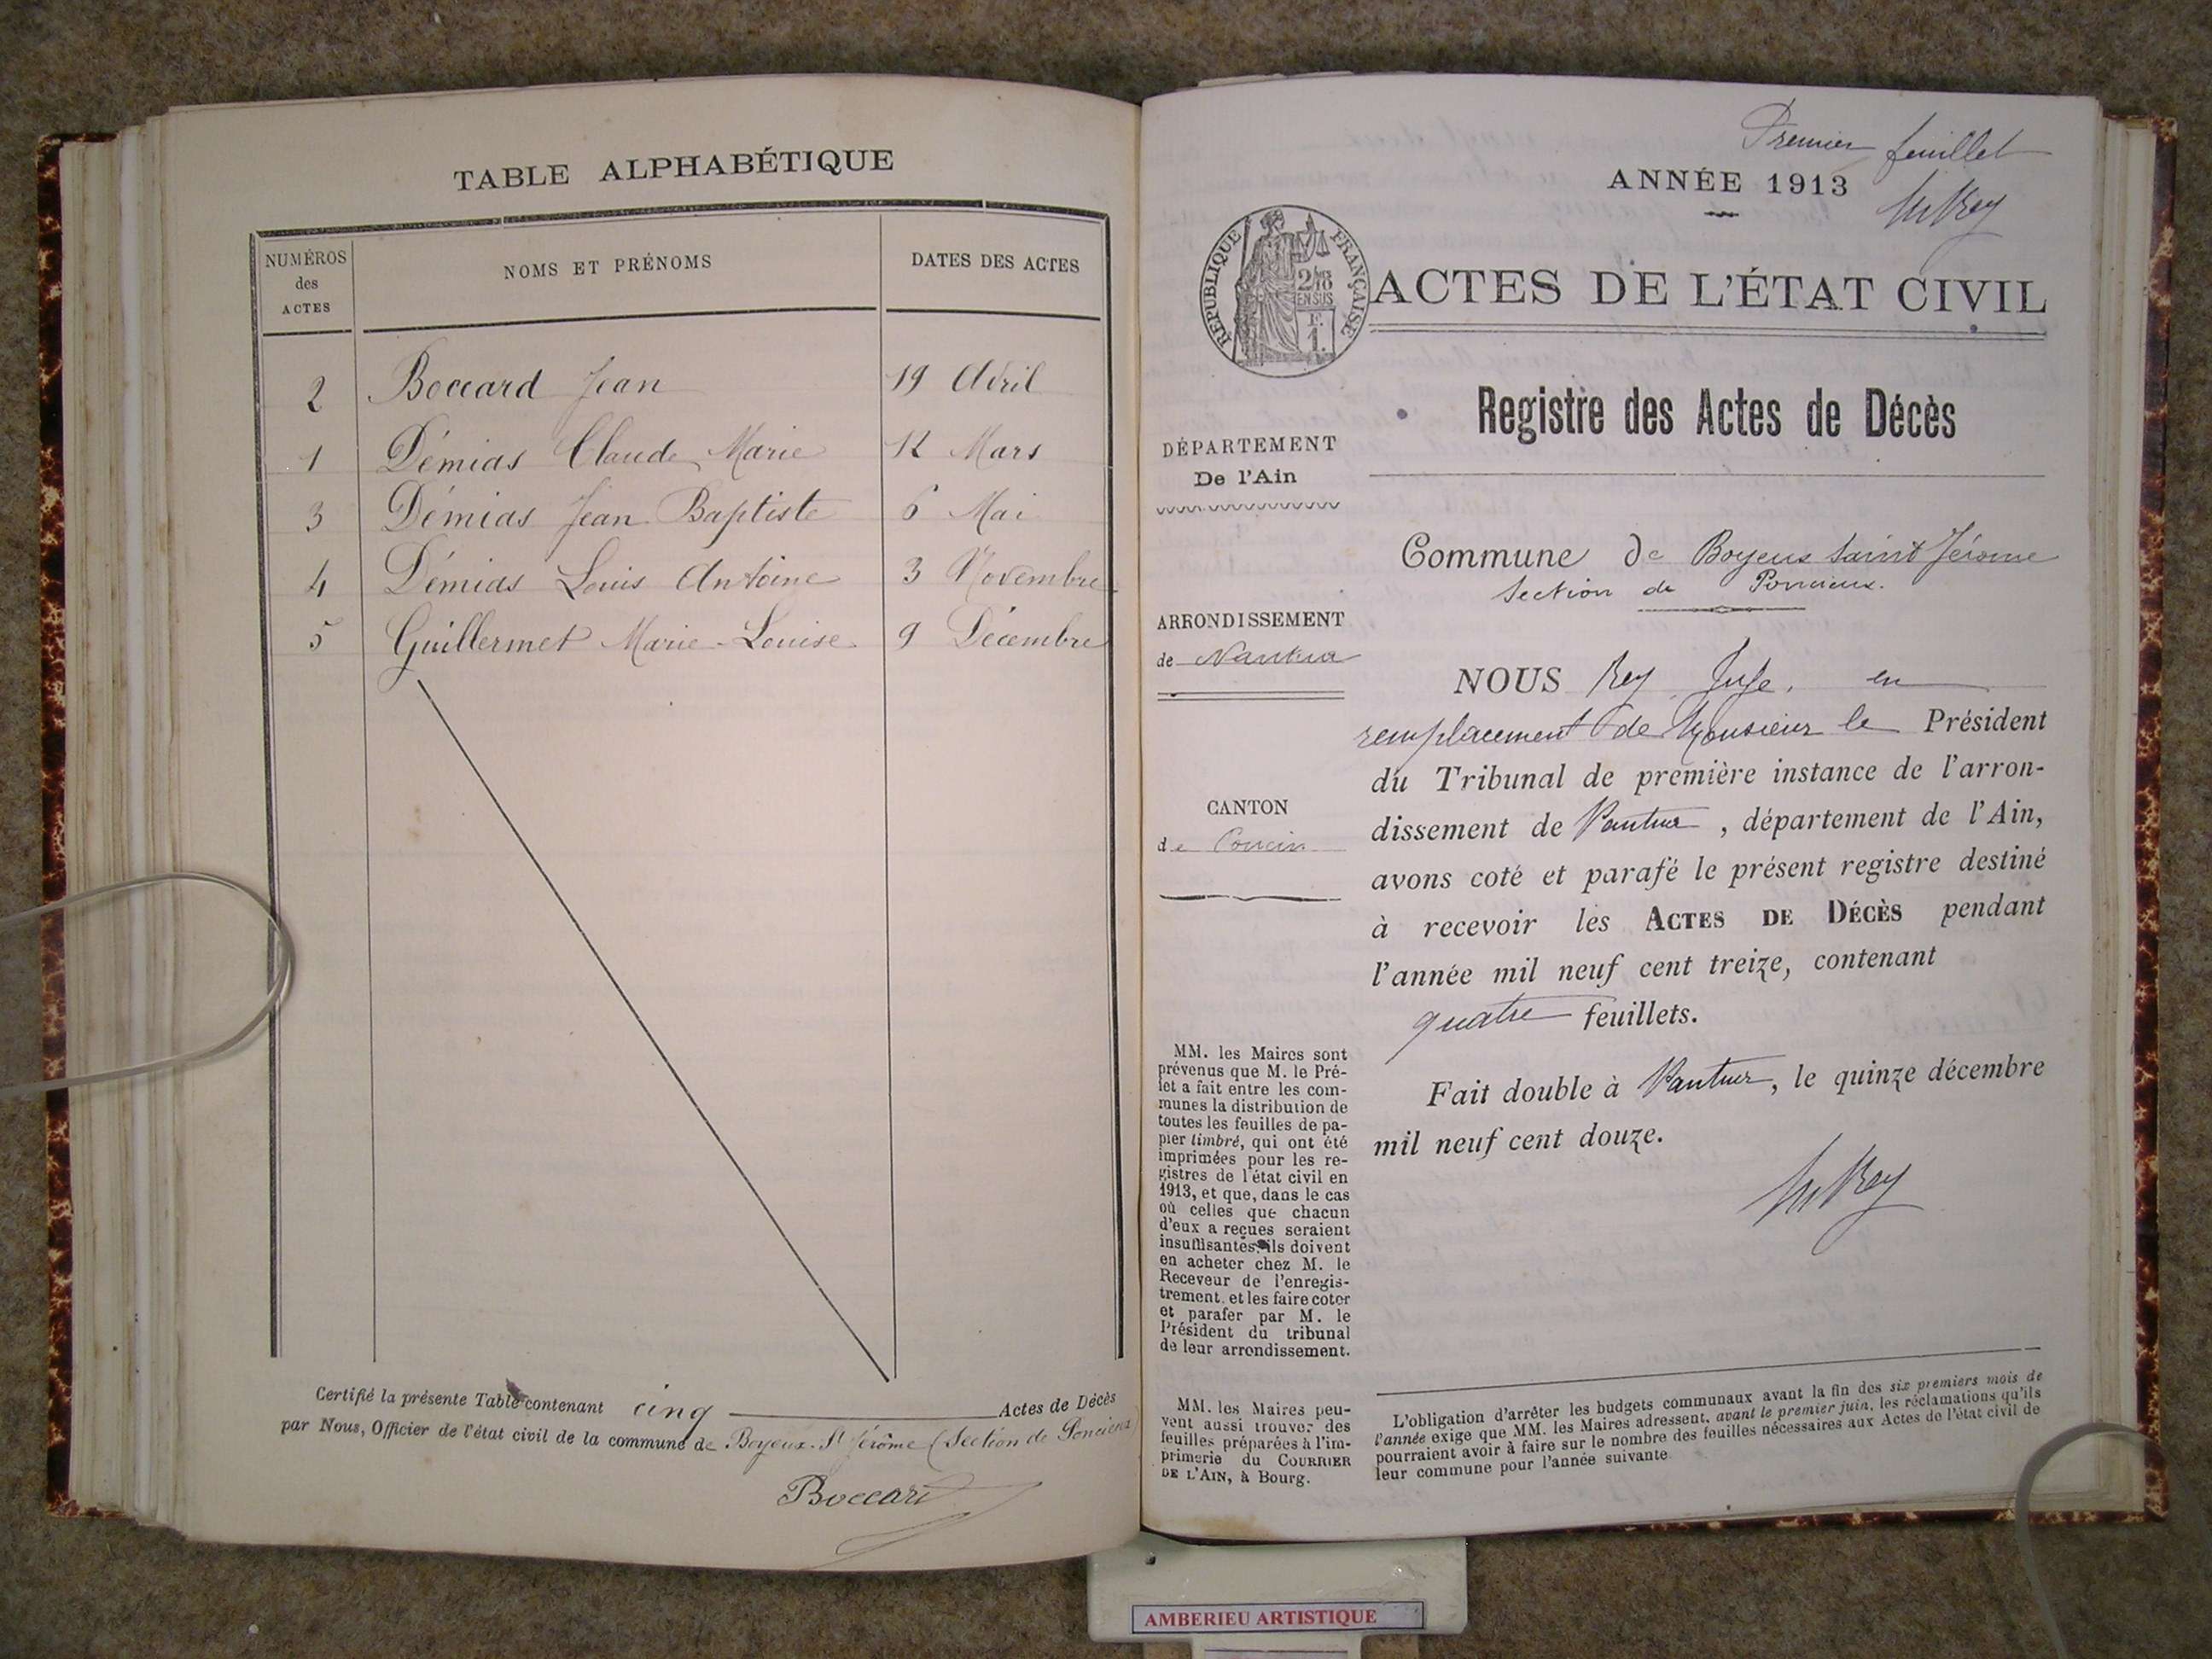 TABLE ALPHABÉTIQUE
NUMÉROS
des
ACTES
NOMS ET PRÉNOMS
DATES DES ACTES
2 Boccard Jean 19 Avril
1 Démias Claude Marie 12 Mars
3 Démias Jean Baptiste 6 Mai
4 Démias Louis Antoine 3 Novembre
5 Guillermet Marie-Louise 9 Décembre
Certifié la présente Table contenant cinq Actes de Décès
par Nous, Officier de l'état civil de la commune de Boyeux-St Jérôme (Section de Poncieux)
Boccard
Premier feuillet
ANNÉE 1913
Rey
RÉPUBLIQUE FRANÇAISE
2/10
EN SUS
F.
1.
ACTES DE L'ÉTAT CIVIL
Registre des Actes de Décès
DÉPARTEMENT
De l'Ain
Commune de Boyeux Saint Jérome
Section de Poncieux.
ARRONDISSEMENT
de Nantua
CANTON
de Poncin
NOUS Rey, Juge, en
remplacement de Monsieur le Président
du Tribunal de première instance de l'arron-
dissement de Nantua, département de l'Ain,
avons coté et parafé le présent registre destiné
à recevoir les ACTES DE DÉCÈS pendant
l'année mil neuf cent treize, contenant
quatre feuillets.
Fait double à Nantua, le quinze décembre
mil neuf cent douze.
Rey
MM. les Maires sont
prévenus que M. le Pré-
fet a fait entre les com-
munes la distribution de
toutes les feuilles de pa-
pier timbré, qui ont été
imprimées pour les re-
gistres de l'état civil en
1913, et que, dans le cas
où celles que chacun
d'eux a reçues seraient
insuffisantes, ils doivent
en acheter chez M. le
Receveur de l'enregis-
trement, et les faire coter
et parafer par M. le
Président du tribunal
de leur arrondissement.
MM. les Maires peu-
vent aussi trouver des
feuilles préparées à l'im-
primerie du COURRIER
DE L'AIN, à Bourg.
L'obligation d'arrêter les budgets communaux avant la fin des six premiers mois de
l'année exige que MM. les Maires adressent, avant le premier juin, les réclamations qu'ils
pourraient avoir à faire sur le nombre des feuilles nécessaires aux Actes de l'état civil de
leur commune pour l'année suivante.
AMBERIEU ARTISTIQUE